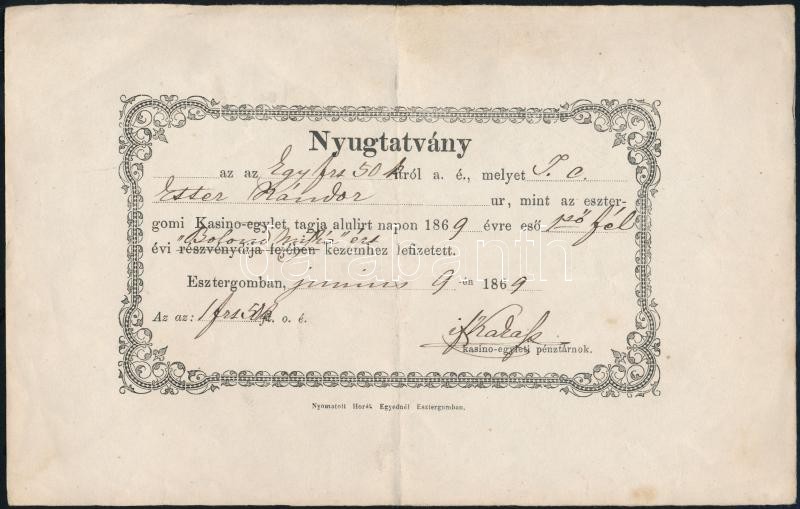 Nyugtatvány
az az Egy frs 50 k ról a. é., melyet T. c.
Esster Nándor ur, mint az eszter-
gomi Kasino-egylet tagja alulirt napon 1869 évre eső 1ső fél
évi részvénydíja fejében kezemhez lefizetett.
Esztergomban, junius 9 -én 1869
Az az: 1 frs 50 k o. é.
kasino-egyleti pénztárnok.
Nyomatott Horák Egyednél Esztergomban.
darabanth